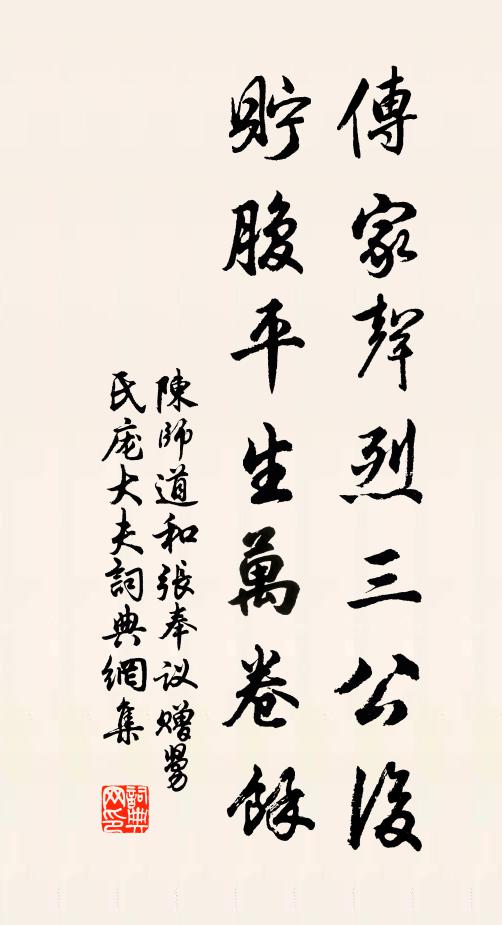 傳家聲烈三公後
貯腹平生萬卷餘
陳師道和張奉议贈舅
民庞大夫詞典網集
詞典网印